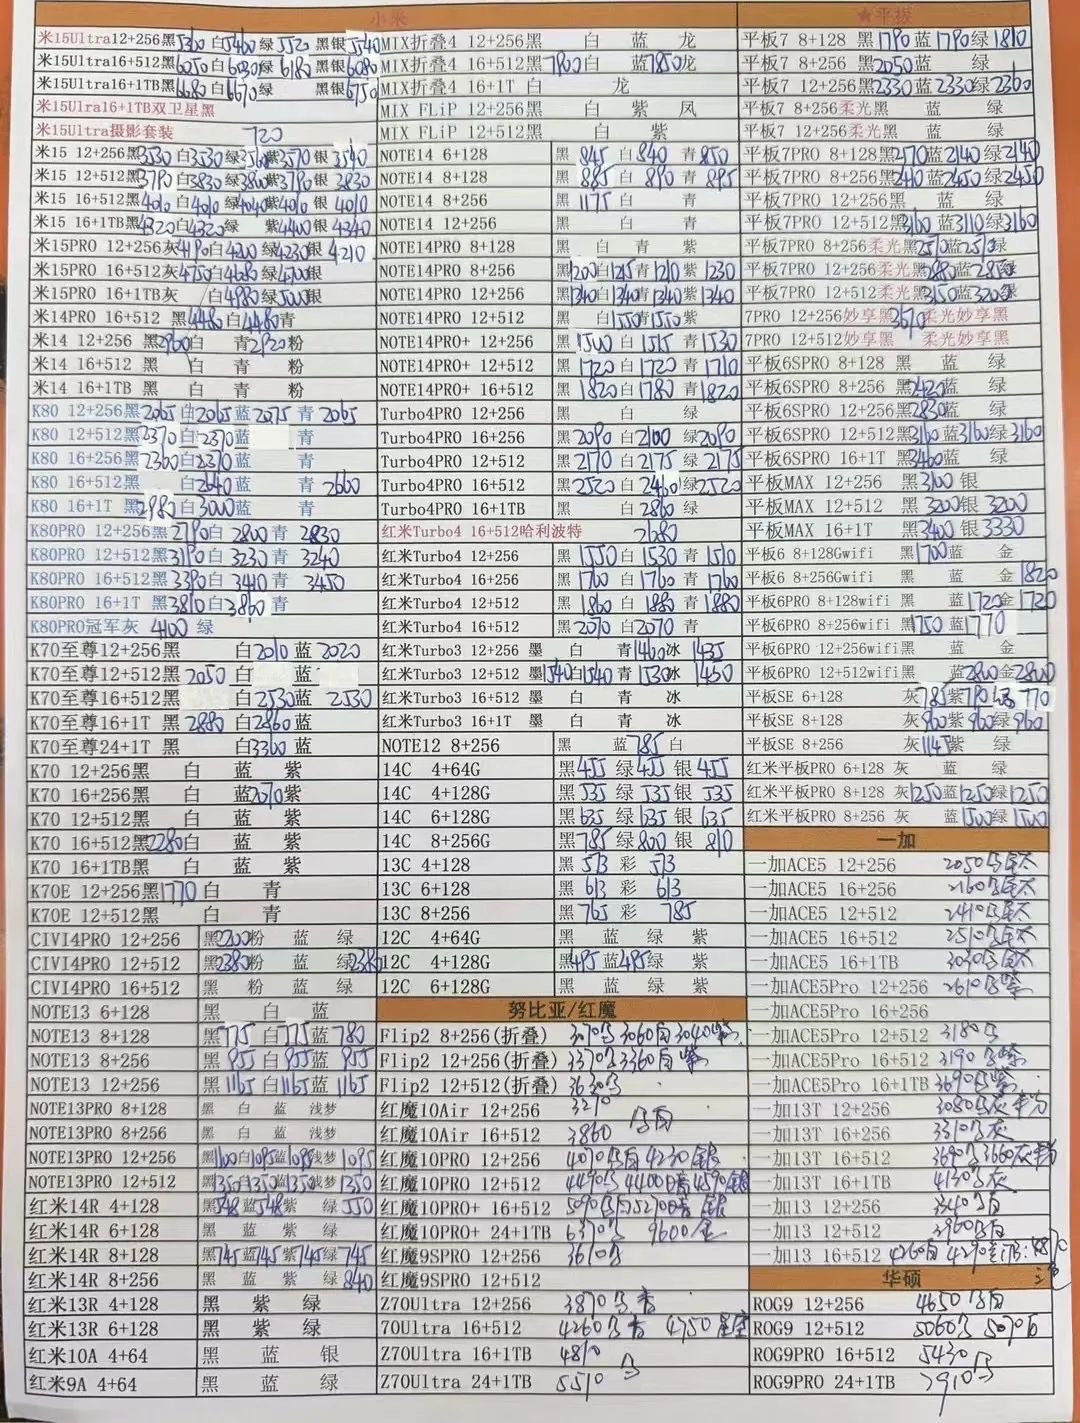 小米
米15Ultra12+256黑5360 白5460 绿5520 黑银5540
米15Ultra16+512黑6050 白6030 绿6180 黑银6080
米15Ultra16+1TB黑6680 白6670 绿 黑银6750
米15Ulra16+1TB双卫星黑
米15Ultra摄影套装 720
米15 12+256黑3530 白3530 绿3560 紫3570 银 3540
米15 12+512黑3790 白3830 绿3800 紫3790 银 3830
米15 16+512黑4010 白4010 绿4040 紫4010 银 4010
米15 16+1TB黑4320 白4320 绿 紫4400 银 4340
米15PRO 12+256灰4190 白4200 绿4230 银 4210
米15PRO 16+512灰4750 白4680 绿4700 银
米15PRO 16+1TB灰 白4980 绿5000 银
米14PRO 16+512 黑4480 白4480 青
米14 12+256 黑2960 白 青2920 粉
米14 16+512 黑 白 青 粉
米14 16+1TB 黑 白 青 粉
K80 12+256黑2065 白2065 蓝2075 青 2065
K80 12+512黑2370 白2370 蓝 青
K80 16+256黑2360 白2370 蓝 青
K80 16+512黑 白2640 蓝 青 2660
K80 16+1T 黑2980 白3000 蓝 青
K80PRO 12+256黑2790 白 2800 青 2830
K80PRO 12+512黑3190 白 3230 青 3240
K80PRO 16+512黑3390 白 3410 青 3450
K80PRO 16+1T 黑3810 白3860 青
K80PRO冠军灰 4100 绿
K70至尊12+256黑 白2010 蓝 2020
K70至尊12+512黑 2050 白 蓝
K70至尊16+512黑 白2530 蓝 2530
K70至尊16+1T 黑 2880 白2860 蓝
K70至尊24+1T 黑 白3360 蓝
K70 12+256黑 白 蓝 紫
K70 16+256黑 白 蓝2070 紫
K70 12+512黑 白 蓝 紫
K70 16+512黑2280 白 蓝 紫
K70 16+1TB黑 白 蓝 紫
K70E 12+256黑1770 白 青
K70E 12+512黑 白 青
CIVI4PRO 12+256 黑2200 粉 蓝 绿
CIVI4PRO 12+512 黑2380 粉 蓝 绿2380
CIVI4PRO 16+512 黑 粉 蓝 绿
NOTE13 6+128 黑 白 蓝
NOTE13 8+128 黑775 白775 蓝 780
NOTE13 8+256 黑855 白855 蓝 855
NOTE13 12+256 黑1165 白1165 蓝 1165
NOTE13PRO 8+128 黑 白 蓝 浅梦
NOTE13PRO 8+256 黑 白 蓝 浅梦
NOTE13PRO 12+256 黑1100 白1095 蓝1095 浅梦 1095
NOTE13PRO 12+512 黑1350 白1350 蓝1350 浅梦 1350
红米14R 4+128 黑548 蓝548 紫 绿 550
红米14R 6+128 黑 蓝 紫 绿
红米14R 8+128 黑745 蓝745 紫745 绿 745
红米14R 8+256 黑 蓝 紫 绿840
红米13R 4+128 黑 紫 绿
红米13R 6+128 黑 紫 绿
红米10A 4+64 黑 蓝 银
红米9A 4+64 黑 蓝 绿
MIX折叠4 12+256黑 白 蓝 龙
MIX折叠4 16+512黑7900 白 蓝7850 龙
MIX折叠4 16+1T 白 龙
MIX FLiP 12+256黑 白 紫 凤
MIX FLiP 12+512黑 白 紫
NOTE14 6+128 黑 845 白 840 青 850
NOTE14 8+128 黑 885 白 890 青 895
NOTE14 8+256 黑 1175 白 青
NOTE14 12+256 黑 白 青
NOTE14PRO 8+128 黑 白 青 紫
NOTE14PRO 8+256 黑1200 白1215 青1210 紫 1230
NOTE14PRO 12+256 黑1340 白1340 青1340 紫 1340
NOTE14PRO 12+512 黑 白1550 青1550 紫
NOTE14PRO+ 12+256 黑 1500 白 1515 青 1530
NOTE14PRO+ 12+512 黑 1720 白 1720 青 1710
NOTE14PRO+ 16+512 黑 1820 白 1780 青 1820
Turbo4PRO 12+256 黑 白 绿
Turbo4PRO 16+256 黑 2090 白 2100 绿 2090
Turbo4PRO 12+512 黑 2170 白 2175 绿 2175
Turbo4PRO 16+512 黑 2520 白 2460 绿 2520
Turbo4PRO 16+1TB 黑 白 2860 绿
红米Turbo4 16+512哈利波特 2680
红米Turbo4 12+256 黑 1550 白 1530 青 1510
红米Turbo4 16+256 黑 1760 白 1760 青 1760
红米Turbo4 12+512 黑 1860 白 1880 青 1880
红米Turbo4 16+512 黑 2070 白 2070 青
红米Turbo3 12+256 墨 白 青1460 冰 1435
红米Turbo3 12+512 墨1540 白1540 青1530 冰 1450
红米Turbo3 16+512 墨 白 青 冰
红米Turbo3 16+1T 墨 白 青 冰
NOTE12 8+256 黑 蓝785 白
14C 4+64G 黑455 绿455 银 455
14C 4+128G 黑 535 绿 535 银 535
14C 6+128G 黑 635 绿 635 银 635
14C 8+256G 黑 785 绿 800 银 810
13C 4+128 黑 513 彩 513
13C 6+128 黑 613 彩 613
13C 8+256 黑 765 彩 785
12C 4+64G 黑 蓝 绿 紫
12C 4+128G 黑495 蓝495 绿 紫
12C 6+128G 黑 蓝 绿 紫
努比亚/红魔
Flip2 8+256(折叠) 3070 3060 3040
Flip2 12+256(折叠) 3370 3360
Flip2 12+512(折叠) 3630
红魔10Air 12+256 3210
红魔10Air 16+512 3860
红魔10PRO 12+256 4070 4230
红魔10PRO 12+512 4490 4400 4590
红魔10PRO+ 16+512 5090
红魔10PRO+ 24+1TB 6370 9600
红魔9SPRO 12+256 3610
红魔9SPRO 12+512
Z70Ultra 12+256 3870
70Ultra 16+512 4260 4750
Z70Ultra 16+1TB 4810
Z70Ultra 24+1TB 5510
★平板
平板7 8+128 黑 1790 蓝 1790 绿 1810
平板7 8+256 黑2050 蓝 绿
平板7 12+256黑2330 蓝 2330 绿 2360
平板7 8+256柔光黑 蓝 绿
平板7 12+256柔光黑 蓝 绿
平板7PRO 8+128黑2170 蓝 2140 绿 2140
平板7PRO 8+256黑2410 蓝 2450 绿 2450
平板7PRO 12+256黑 蓝 绿
平板7PRO 12+512黑3160 蓝 3110 绿 3160
平板7PRO 8+256柔光黑2570 蓝2570 绿
平板7PRO 12+256柔光黑2880 蓝2850 绿
平板7PRO 12+512柔光黑3150 蓝3200 绿
7PRO 12+256妙享黑3670 柔光妙享黑
7PRO 12+512妙享黑 柔光妙享黑
平板6SPRO 8+128 黑 蓝 绿
平板6SPRO 8+256 黑2420 蓝 绿
平板6SPRO 12+256黑2830 蓝 绿
平板6SPRO 12+512黑3160 蓝3160 绿 3160
平板6SPRO 16+1T 黑3460 蓝 绿
平板MAX 12+256 黑3100 银
平板MAX 12+512 黑 3200 银 3200
平板MAX 16+1T 黑3400 银 3330
平板6 8+128Gwifi 黑1700 蓝 金
平板6 8+256Gwifi 黑 蓝 金 1820
平板6PRO 8+128wifi 黑 蓝1720 金 1720
平板6PRO 8+256wifi 黑1750 蓝1770
平板6PRO 12+256wifi黑 蓝 金
平板6PRO 12+512wifi黑 蓝2800 金2800
平板SE 6+128 灰 785 紫790 绿 770
平板SE 8+128 灰960 紫 960 绿 960
平板SE 8+256 灰1145 紫 绿
红米平板PRO 6+128 灰 蓝 绿
红米平板PRO 8+128 灰1250 蓝1250 绿1250
红米平板PRO 8+256 灰 蓝1500 绿1500
一加
一加ACE5 12+256 2050
一加ACE5 16+256 2160
一加ACE5 12+512 2410
一加ACE5 16+512 2510
一加ACE5 16+1TB 3090
一加ACE5Pro 12+256 2610
一加ACE5Pro 16+256
一加ACE5Pro 12+512 3180
一加ACE5Pro 16+512 3190
一加ACE5Pro 16+1TB 3690
一加13T 12+256 3080
一加13T 16+256 3310
一加13T 16+512 3690 3660
一加13T 16+1TB 4130
一加13 12+256 3540
一加13 12+512 3960
一加13 16+512 4260 4290
华硕
ROG9 12+256 4650
ROG9 12+512 5060 5070
ROG9PRO 16+512 5430
ROG9PRO 24+1TB 7910